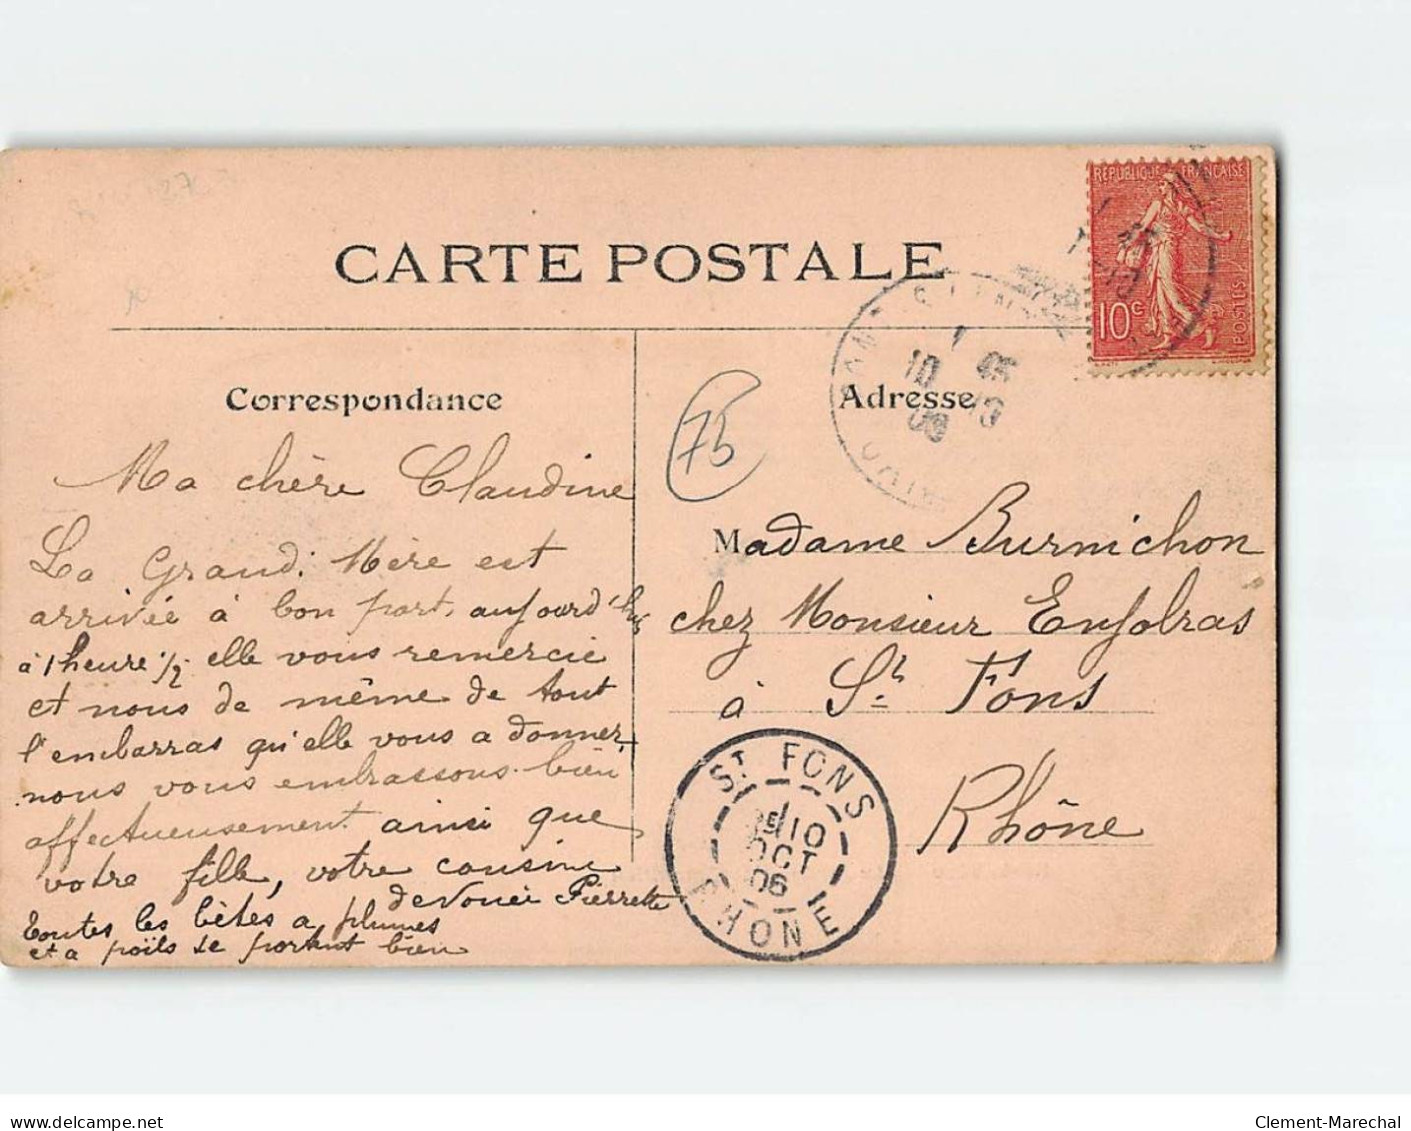 RÉPUBLIQUE FRANÇAISE
10c
POSTES
CARTE POSTALE
Correspondance
Adresse
75
1 45
10 10
06
Ma chère Claudine
La Grand. Mère est
arrivée à bon port, aujourd'hui
à 1 heure 1/2 elle vous remercie
et nous de même de tout
l'embarras qu'elle vous a donner,
nous vous embrassons bien
affectueusement ainsi que
votre fille, votre cousine
dévouée Pierrette
Toutes les bêtes a plumes
et a poils se portent bien
Madame Burnichon
chez Monsieur Enjolras
à St Fons
Rhône
ST FONS
10
OCT
06
RHONE
Clement-Marechal